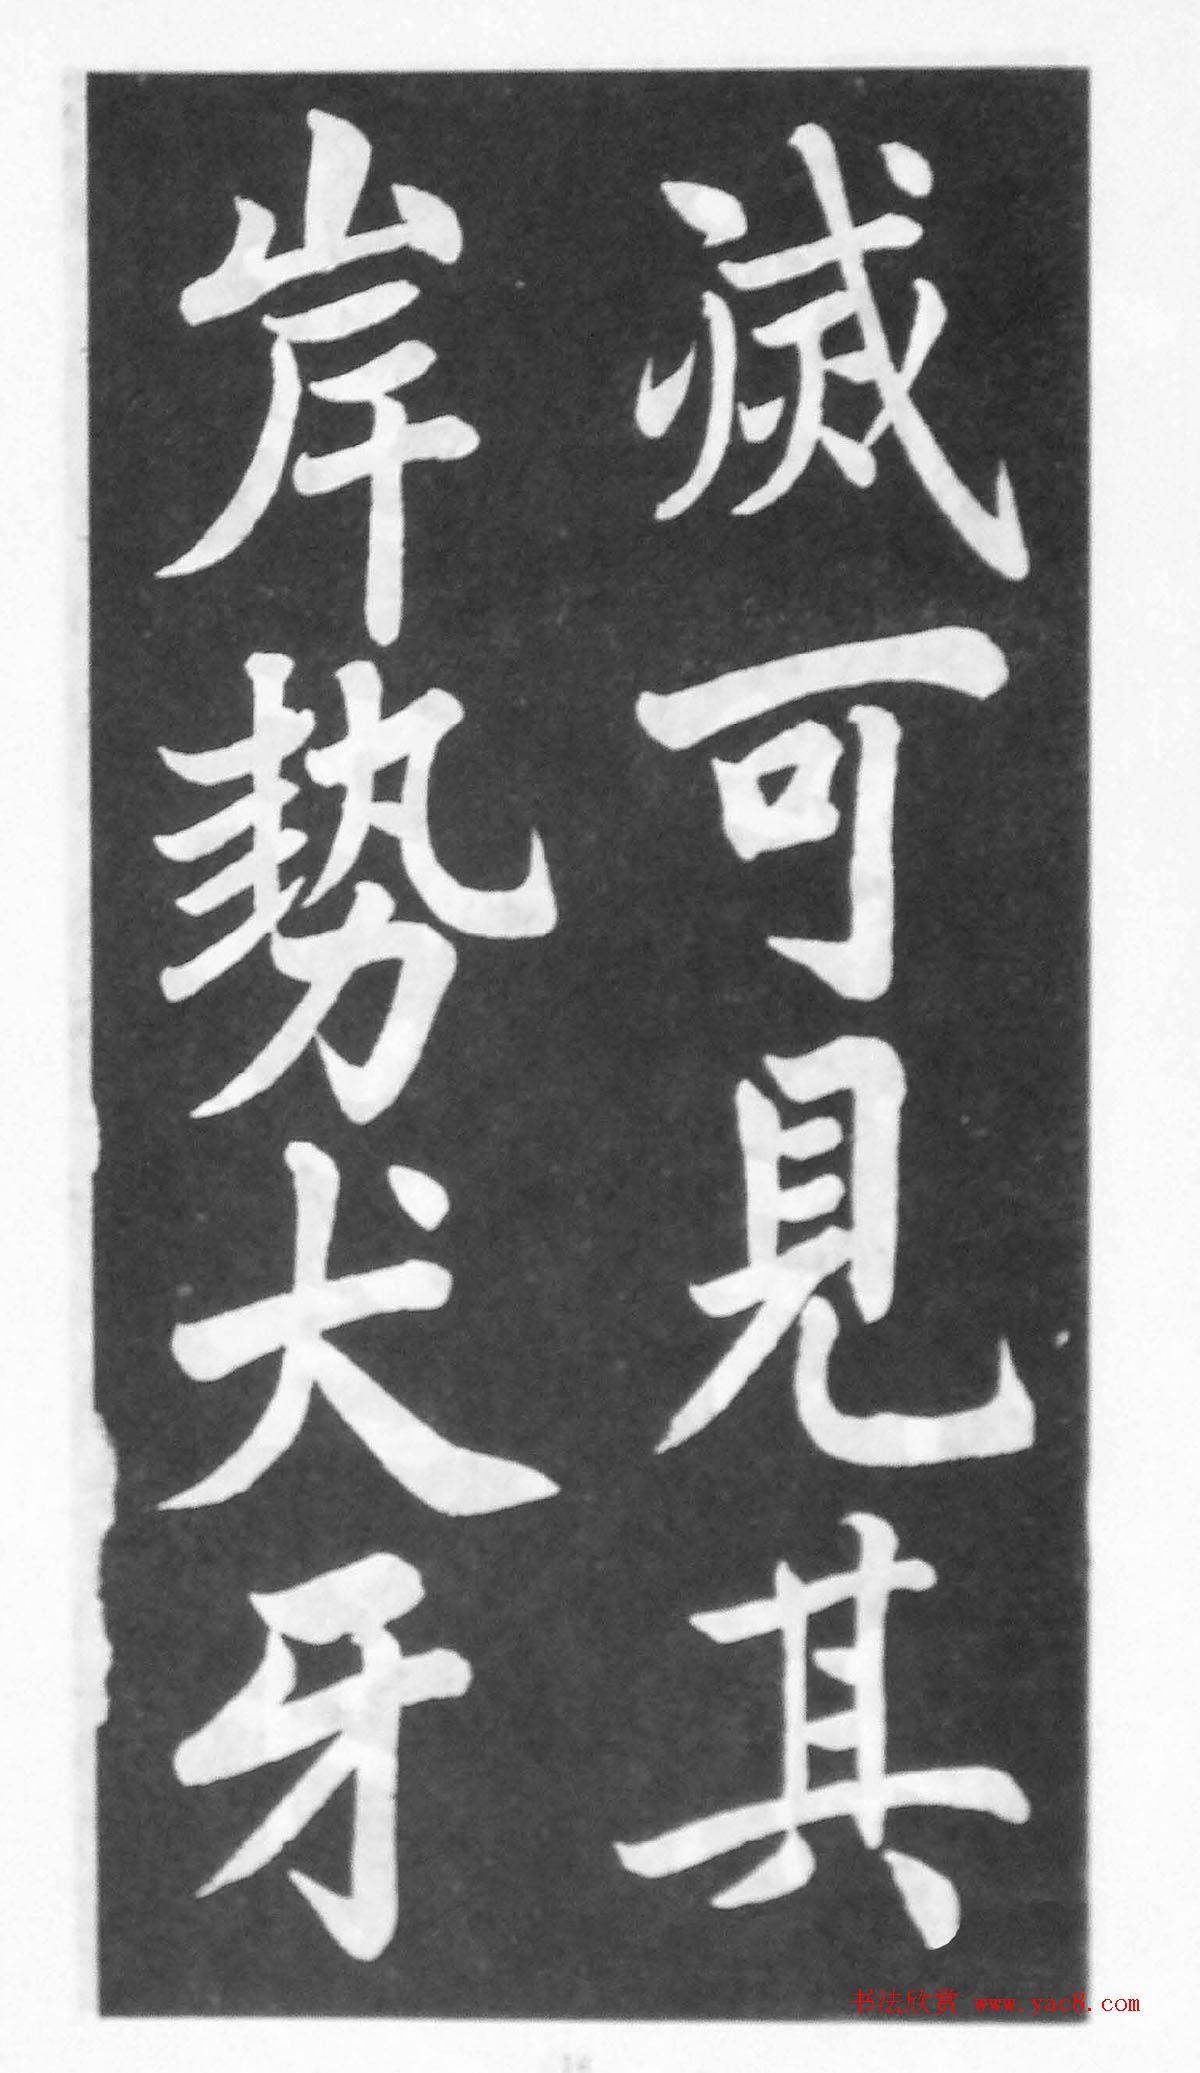 滅可見其
岸勢犬牙
书法欣赏 www.yac8.com
16